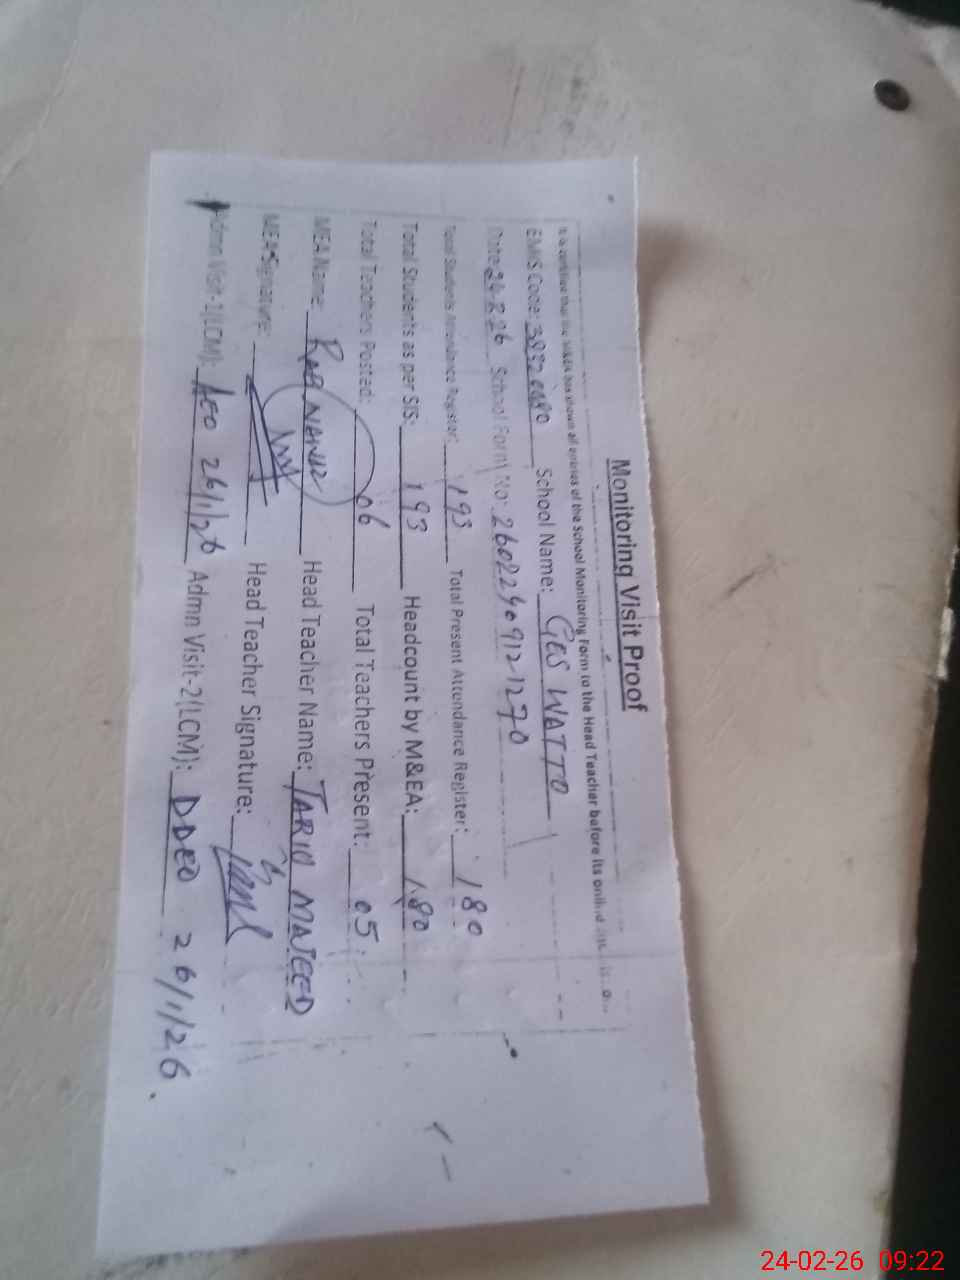 Monitoring Visit Proof
It is certified that the M&EA has shown all entries of the School Monitoring Form to the Head Teacher before its online
EMIS Code: School Name: GES WATTO
Date: 24.2.26 School Form No: 26022409121270
Total Students Attendance Register: 193 Total Present Attendance Register: 180
Total Students as per SIS: 193 Headcount by M&EA: 180
Total Teachers Posted: 06 Total Teachers Present: 05
MEA Name: RAB NAWAZ Head Teacher Name: TARIQ MAJEED
MEA Signature: Head Teacher Signature:
Admn Visit-1(LCM): AEO 26/1/26 Admn Visit-2(LCM): DDEO 26/1/26.
24-02-26 09:22